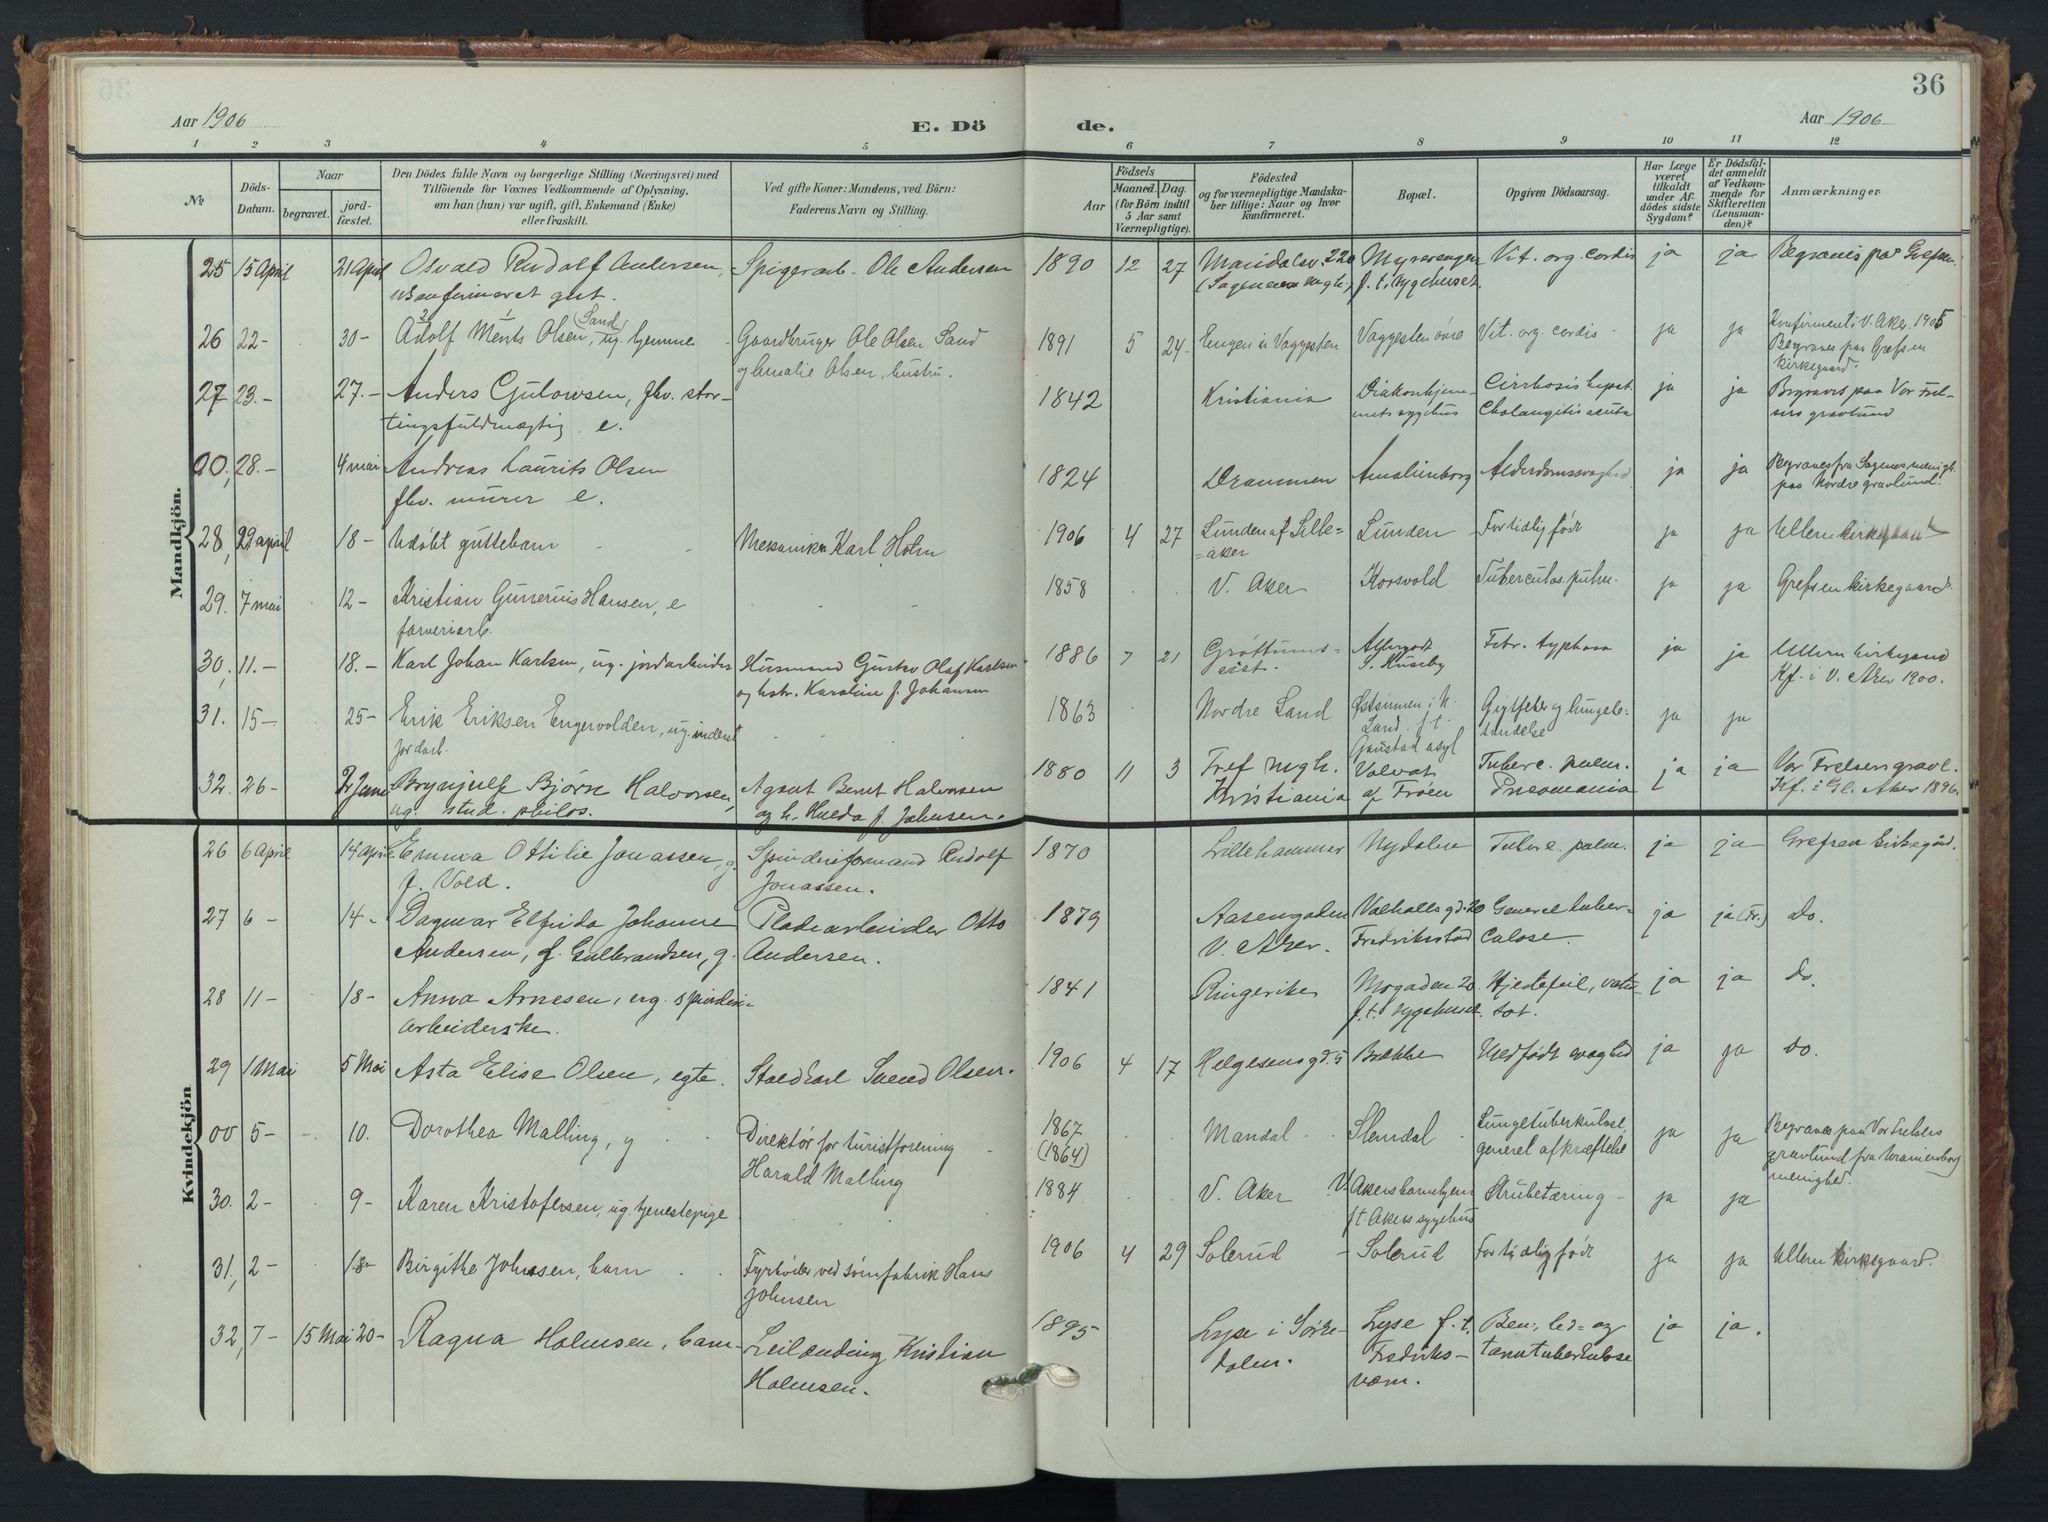 36
Aar 1906
E. Dö
de.
Aar 1906
1 2 3 4 5 6 7 8 9 10 11 12
№
Döds-
Datum.
Naar
begravet.
jord-
fæstet.
Den Dödes fulde Navn og borgerlige Stilling (Næringsvei) med
Tilföiende for Voxnes Vedkommende af Oplysning,
om han (hun) var ugift, gift, Enkemand (Enke)
eller fraskilt.
Ved gifte Koner: Mandens, ved Börn:
Faderens Navn og Stilling.
Födsels
Aar
Maaned. Dag.
(for Börn indtil
5 Aar samt
Værnepligtige).
Födested
og for værnepligtige Mandska-
ber tillige: Naar og hvor
konfirmeret.
Bopæl.
Opgiven Dödsaarsag.
Har Læge
været
tilkaldt
under Af-
dödes sidste
Sygdom?
Er Dödsfal-
det anmeldt
af Vedkom-
mende for
Skifteretten
(Lensman-
den)?
Anmærkninger
Mandkjön.
25 15 April 21 April Osvald Rudolf Andersen, Spigerarb. Ole Andersen 1890 12 27 Maridalsv. 220 Myrerengen Vit. org. cordis ja ja Begraves paa Grefsen.
ukonfirmeret gut. (Sagenes mgh.) f. t. sygehuset.
26 22- 30- Adolf Ments Olsen (Sand), ug. hjemme Gaardbruger Ole Olsen Sand 1891 5 24- Engen u Vaggesten Vaggesten övre Vit. org. cordis ja ja Konfirmert i V. Aker 1905
og Amalie Olsen, hustru. Begraves paa Grefsen
kirkegaard.
27 23.- 27.- Anders Gulowsen, fhv. stor- 1842 Kristiania Diakonhjem- Cirrhosis hepat. ja ja Begraves paa Vor Frel-
tingsfuldmægtig e. mets sygehus Cholangitis acuta sers gravlund
00, 28.- 4 mai Andreas Laurits Olsen 1824 Drammen Amalienborg Alderdomssvaghed ja ja Begraves fra Sagenes menigh.
fhv. murer e. paa Nordre gravlund.
28, 29 april 18- Udöbt guttebarn Mekaniker Karl Holm 1906 4 27 Lunden af Lille- Lunden For tidlig födt ja ja Ullern kirkegaard
=aker
29. 7 mai 12- Kristian Gunerius Hansen, e 1858 V. Aker Korsvold Tuberculos. pulm. ja ja Grefsen kirkegaard.
farveriarb.
30, 11.- 18.- Karl Johan Karlsen, ug. jordarbeider Husmand Gustav Olaf Karlsen 1886 7 21 Gröttums- S. Huseby Febr. typhosa ja ja Ullern kirkegaard
og hstr. Karoline f. Johansen eiet. Kf. i V. Aker 1900.
31. 15- 25- Erik Eriksen Engervolden, ug. inderst 1863 Nordre Land Östsinnen i N. Gigtfeber og lungebe- ja ja
jordarb. Land f. t. tændelse
Gaustad asyl
32. 26- 2 Juni Brynjulf Björn Halvorsen, Agent Bernt Halvorsen 1880 11 3 Tref. mgh. Volvat Tuberc. pulm. ja ja Vor Frelsers gravl.
ug. stud. philos. og h. Hulda f. Johnsen. Kristiania af Fröen Pneomonia Kf. i Gl. Aker 1896.
Kvindekjön
26 6 April 14 April Emma Ottilie Jonassen, g. Spinderiformand Rudolf 1870 Lillehammer Nydalen Tuberc. pulm. ja ja Grefsen kirkegård.
f. Vold. Jonassen.
27 6- 14- Dagmar Elfrida Johanne Pladearbeider Otto 1879 Aasengaden Valhallsgd. 20 Generel tuber- ja ja (Fr.) do.
Andersen, f. Gulbrandsen, g. Andersen. V. Aker. Fredriksstad culose.
28 11- 18- Anna Arnesen, ug. spinderi- 1841 Ringerike Mogaden 20 Hjertefeil, ja ja do.
arbeiderske. f. t. sygehuset.
29 1 Mai 5 Mai Asta Elise Olsen, egte. Staldkarl Svend Olsen. 1906 4 17 Helgesens gd. 5 Brekke Medfödt svaghed ja ja do.
00 5- 10. Dorothea Malling, g Direktör for turistforening 1867 Mandal Slemdal Lungetuberkulose, ja ja Begraves paa Vor Frelsers
Harald Malling (1864) generel afkræftelse gravlund fra Uranienborg
menighed.
30. 2- 9- Karen Kristofersen, ug. tjenestepige 1884 V. Aker V. Akers barnehjem Strubetæring ja ja
f. t. Akers sygehus
31, 2- 18- Birgithe Johnsen, barn Fyrböter ved sömfabrik Hans 1906 4 29 Solerud Solerud For tidlig födt ja ja Ullern kirkegaard.
Johnsen
32, 7- 15 Mai 20- Ragna Holmsen, barn Leilænding Kristian 1895 Lyse i Sörke- Lyse f. t. Ben-, led- og ja ja.
Holmsen. dalen. Fredriks- tarmtuberkulose
værn.